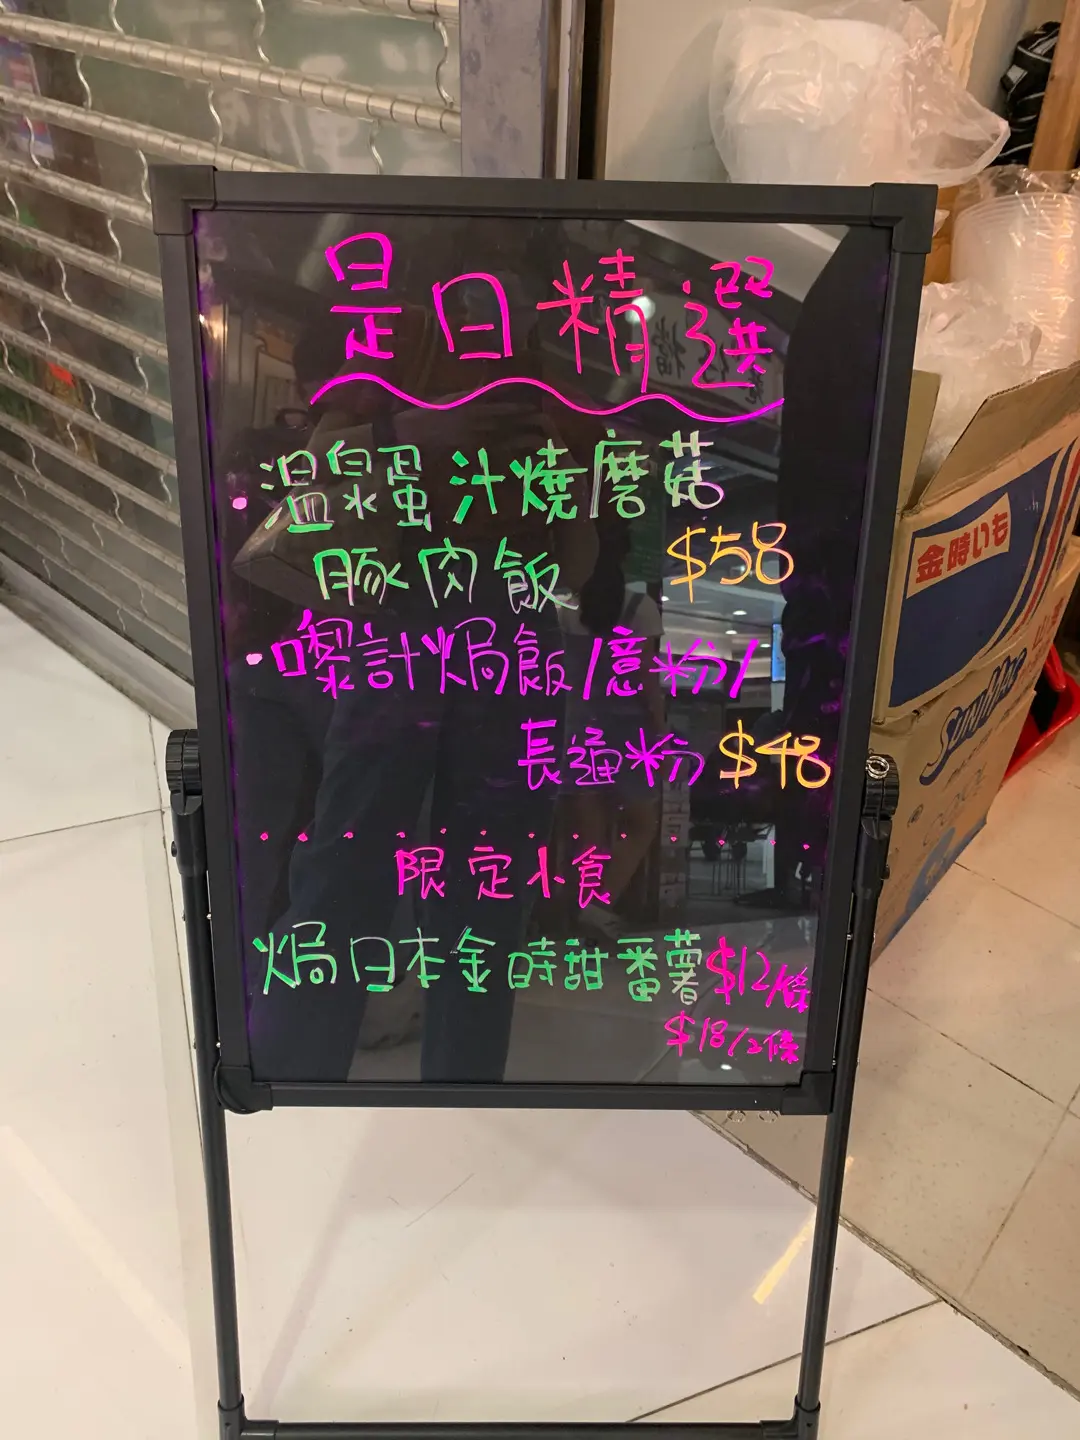 是日精選
·温泉蛋汁燒磨菇
豚肉飯 $58
·嚟計焗飯/意粉/
長通粉 $48
限定小食
焗日本金時甜番薯 $12/條
$18/2條
金時いも